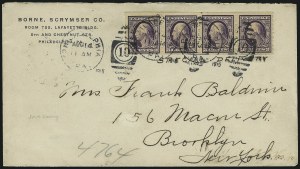 BORNE, SCRYMSER CO.
ROOM 722, LAFAYETTE BLDG.
5TH AND CHESTNUT STS.
PHILADELPHIA
19
STA
Frank Baldwin
156 Macon St.
Brooklyn
New York.
4764